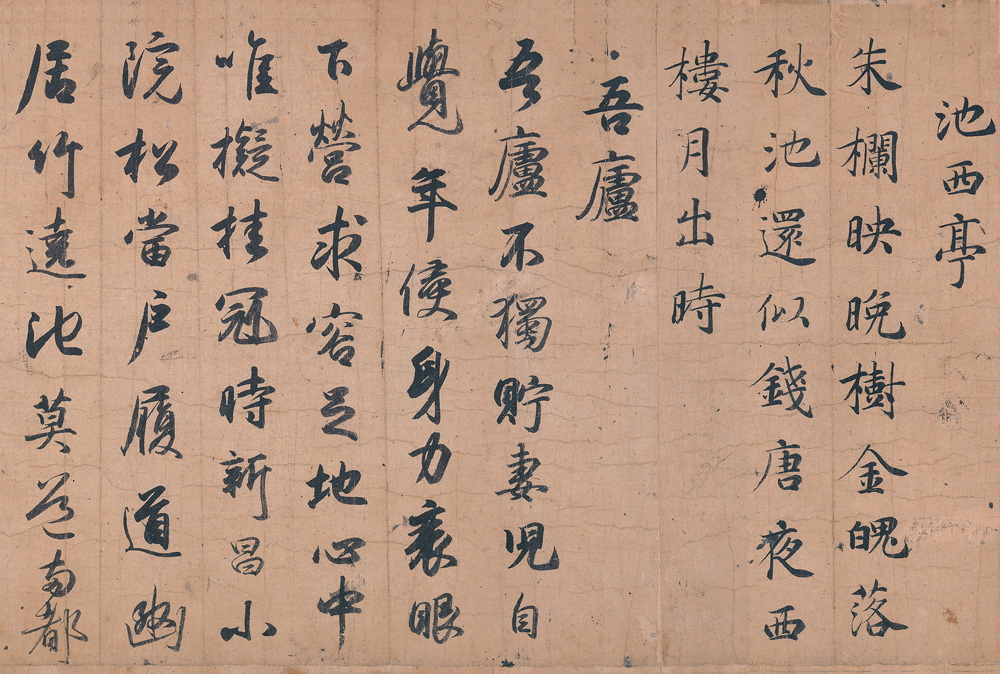 池西亭
朱欄映晚樹金魄落
秋池還似錢唐夜西
樓月出時
吾廬
吾廬不獨貯妻兒自
覺年侵身力衰眼
下營求容足地心中
唯擬挂冠時新昌小
院松當戶履道幽
居竹遶池莫道兩都